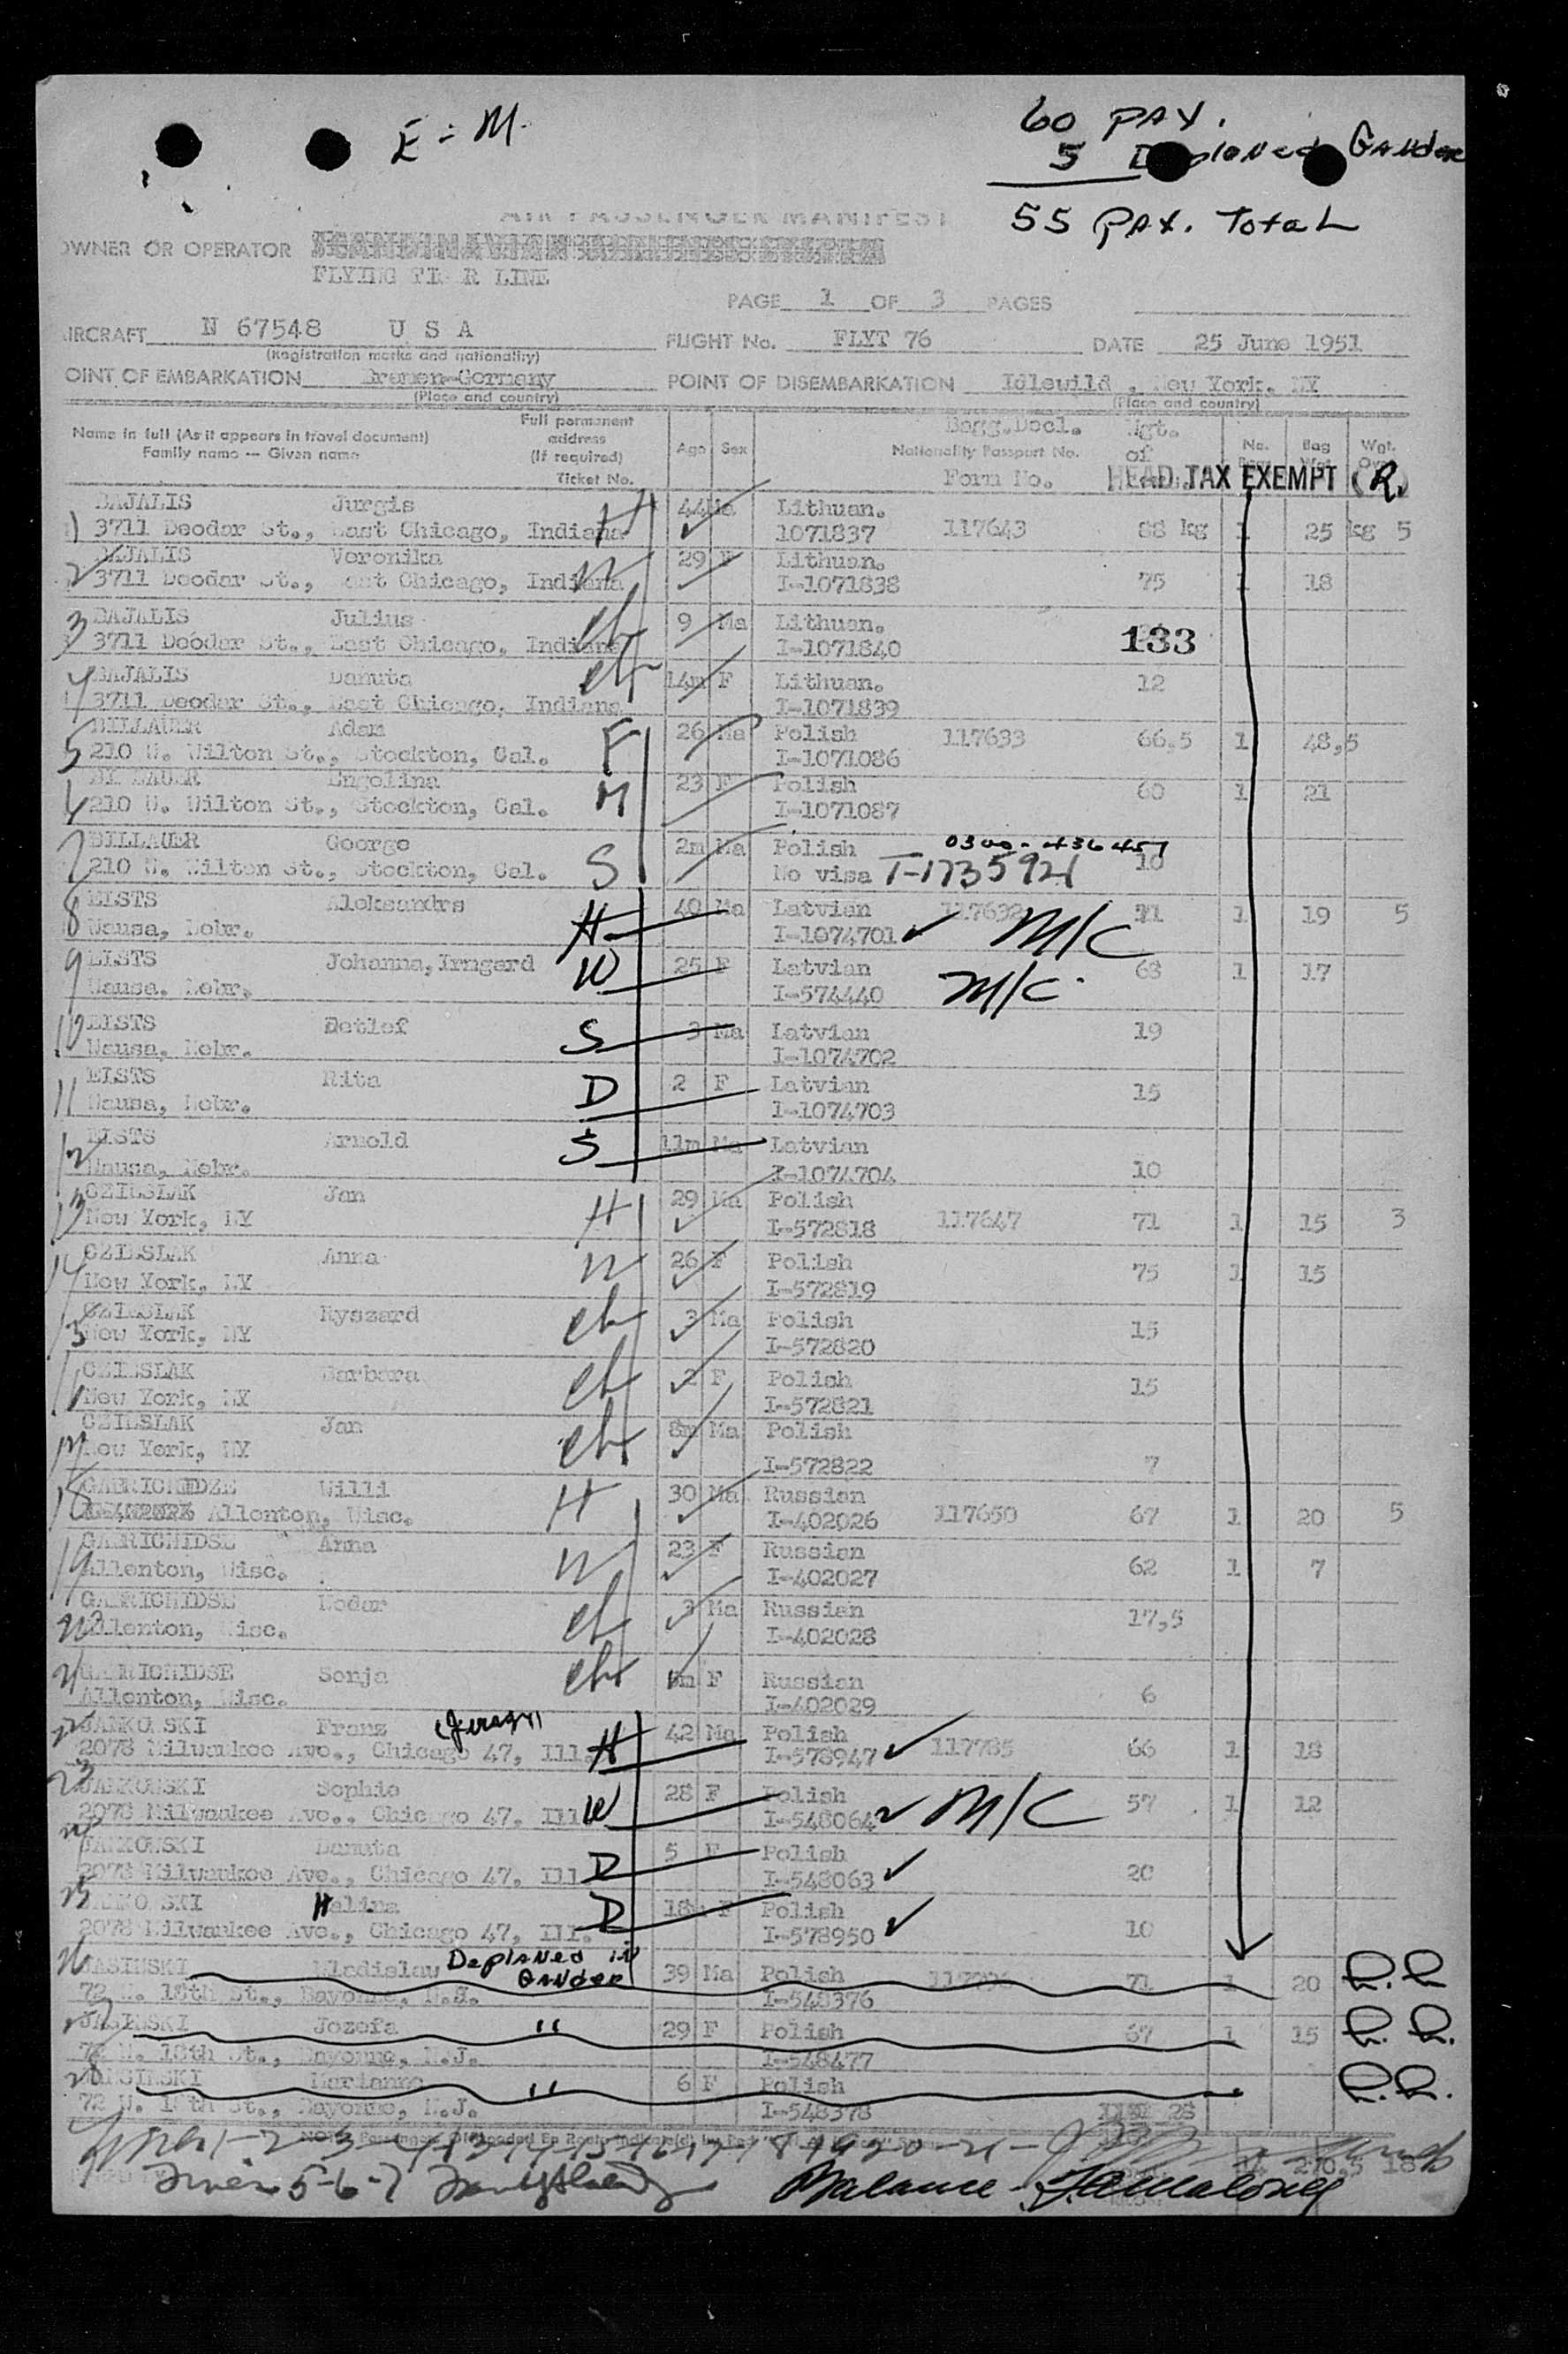 E - M.
60 PAX.
5 Deplaned Gander
55 PAX. Total
AIR PASSENGER MANIFEST
OWNER OR OPERATOR
FLYING TIGER LINE
PAGE 1 OF 3 PAGES
AIRCRAFT N 67548 U S A FLIGHT No. FLYT 76 DATE 25 June 1951
(Registration marks and nationality)
POINT OF EMBARKATION Bremen-Germany POINT OF DISEMBARKATION Idlewild, New York, NY
(Place and country) (Place and country)
Name in full (As it appears in travel document) Family name — Given name Full permanent address (If required) Ticket No. Age Sex Nationality Passport No. Bagg.Decl. Form No. Wgt. of No. Bag Wgt.
HEAD TAX EXEMPT (R.)
1 BAJALIS Jurgis H 44 Ma Lithuan.
3711 Deodar St., East Chicago, Indiana 1071837 117643 88 kg 1 25 kg 5
2 BAJALIS Veronika W 29 F Lithuan.
3711 Deodar St., East Chicago, Indiana I-1071838 75 1 18
3 BAJALIS Julius ch 9 Ma Lithuan.
3711 Deodar St., East Chicago, Indiana I-1071840 133
4 BAJALIS Danuta ch 14m F Lithuan. 12
3711 Deodar St., East Chicago, Indiana I-1071839
5 BILLAUER Adam F 26 Ma Polish 117633 66.5 1 48,5
210 W. Wilton St., Stockton, Cal. I-1071086
6 BILLAUER Engelina M 23 F Polish 60 1 21
210 W. Wilton St., Stockton, Cal. I-1071087
7 BILLAUER George S 2m Ma Polish 0300-436451
210 W. Wilton St., Stockton, Cal. No visa T-1735921 10
8 EISTS Aleksandrs H 40 Ma Latvian 117632 71 1 19 5
Wausa, Nebr. I-1074701 M/C
9 EISTS Johanna, Irmgard W 25 F Latvian 63 1 17
Wausa, Nebr. I-574440 M/C
10 EISTS Detlef S 3 Ma Latvian 19
Wausa, Nebr. I-1074702
11 EISTS Rita D 2 F Latvian 15
Wausa, Nebr. I-1074703
12 EISTS Arnold S 11m Ma Latvian
Wausa, Nebr. I-1074704 10
13 CZIESLAK Jan H 29 Ma Polish
New York, NY I-572818 117647 71 1 15 3
14 CZIESLAK Anna W 26 F Polish
New York, NY I-572819 75 1 15
15 CZIESLAK Ryszard ch 3 Ma Polish
New York, NY I-572820 15
16 CZIESLAK Barbara ch 2 F Polish
New York, NY I-572821 15
17 CZIESLAK Jan ch 8m Ma Polish
New York, NY I-572822 7
18 GABRICHIDZE Willi H 30 Ma Russian
Allenton, Wisc. I-402026 117650 67 1 20 5
19 GABRICHIDSE Anna W 23 F Russian
Allenton, Wisc. I-402027 62 1 7
20 GABRICHIDSE Nodar ch 3 Ma Russian 17,5
Allenton, Wisc. I-402028
21 GABRICHIDSE Sonja ch F Russian 6
Allenton, Wisc. I-402029
22 JANKOWSKI Franz H 42 Ma Polish
2078 Milwaukee Ave., Chicago 47, Ill. I-578947 117785 66 1 18
23 JANKOWSKI Sophie W 28 F Polish
2078 Milwaukee Ave., Chicago 47, Ill. I-548064 M/C 57 1 12
24 JANKOWSKI Danuta D 5 F Polish
2078 Milwaukee Ave., Chicago 47, Ill. I-548063 20
25 JANKOWSKI Halina D 18m F Polish
2078 Milwaukee Ave., Chicago 47, Ill. I-578950 10
26 JASINSKI Wladislaw Deplaned in Gander 39 Ma Polish 71 1 20
72 W. 18th St., Bayonne, N.J. I-548376
27 JASINSKI Jozefa " 29 F Polish 67 1 15
72 W. 18th St., Bayonne, N.J. I-548477
28 JASINSKI Marianne " 6 F Polish
72 W. 18th St., Bayonne, N.J. I-548378
270.5 18
5-6-7
Balance